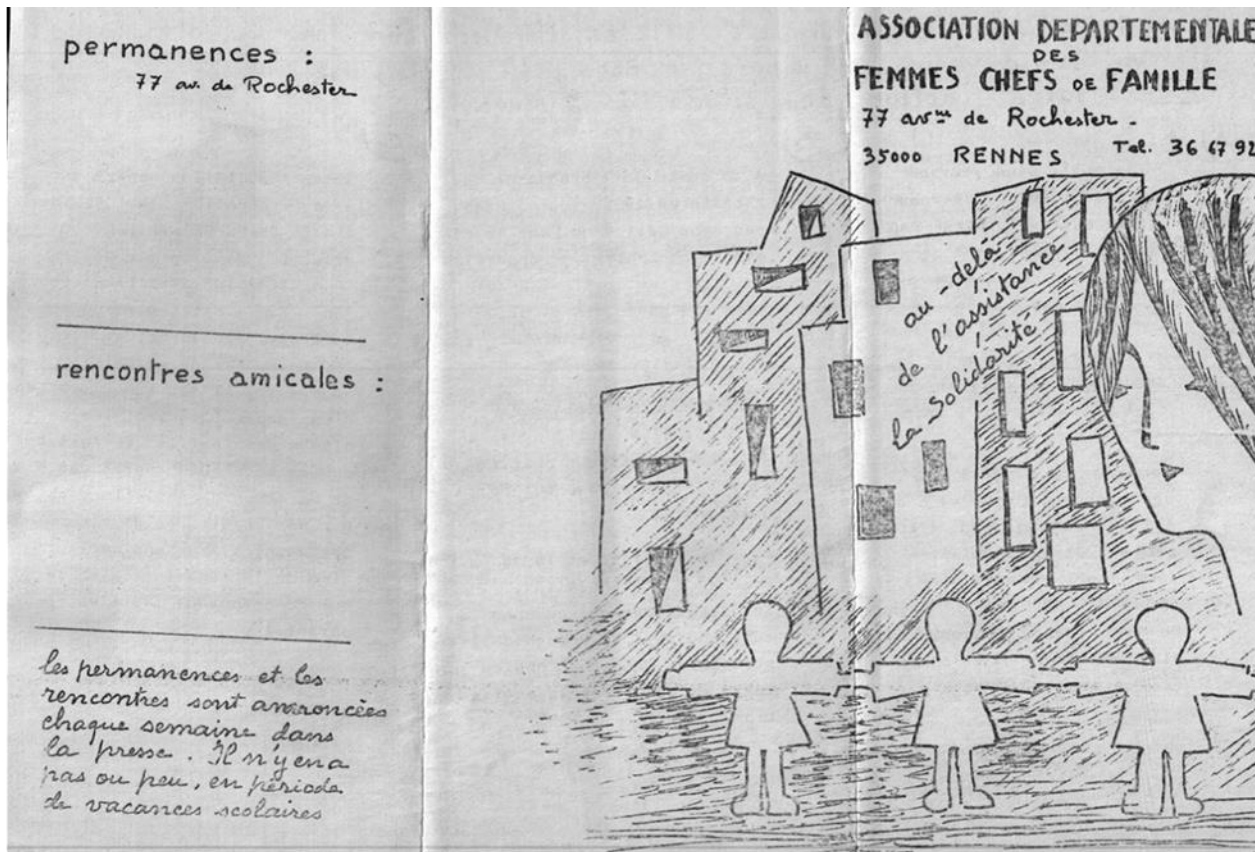 permanences :
77 av. de Rochester
rencontres amicales :
les permanences et les
rencontres sont annoncées
chaque semaine dans
la presse. Il n'y en a
pas ou peu, en période
de vacances scolaires
ASSOCIATION DEPARTEMENTALE
DES
FEMMES CHEFS DE FAMILLE
77 avnue de Rochester -
35000 RENNES Tel. 36 67 92
au-delà
de l'assistance
la Solidarité